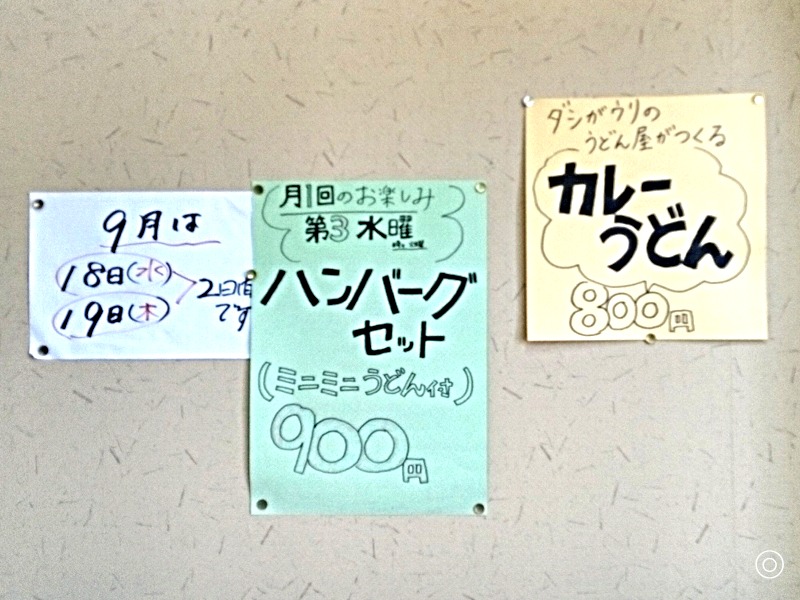 9月は
18日(水)
19日(木)
2日間
です
月1回のお楽しみ
第3水曜
ハンバーグ
セット
(ミニミニうどん付き)
900円
ダシがウリの
うどん屋がつくる
カレー
うどん
800円